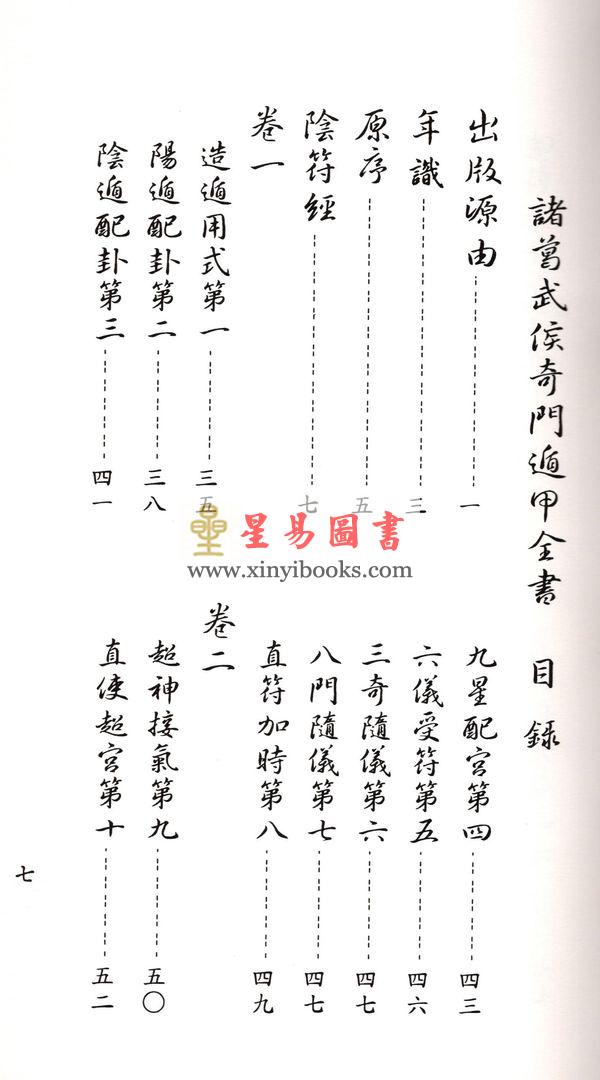 諸葛武侯奇門遁甲全書　目錄
出版源由 一
年識 三
原序 五
陰符經 七
卷一
造遁用式第一 三五
陽遁配卦第二 三八
陰遁配卦第三 四一
九星配宮第四 四三
六儀受符第五 四六
三奇隨儀第六 四七
八門隨儀第七 四七
直符加時第八 四九
卷二
超神接氣第九 五〇
直使超宮第十 五二
七
星易圖書
www.xinyibooks.com